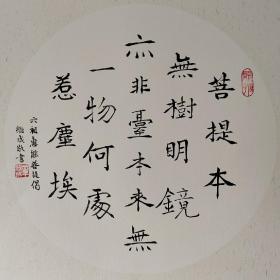 菩提本
無樹明鏡
亦非臺本來無
一物何處
惹塵埃
六祖惠能菩提偈
敬書